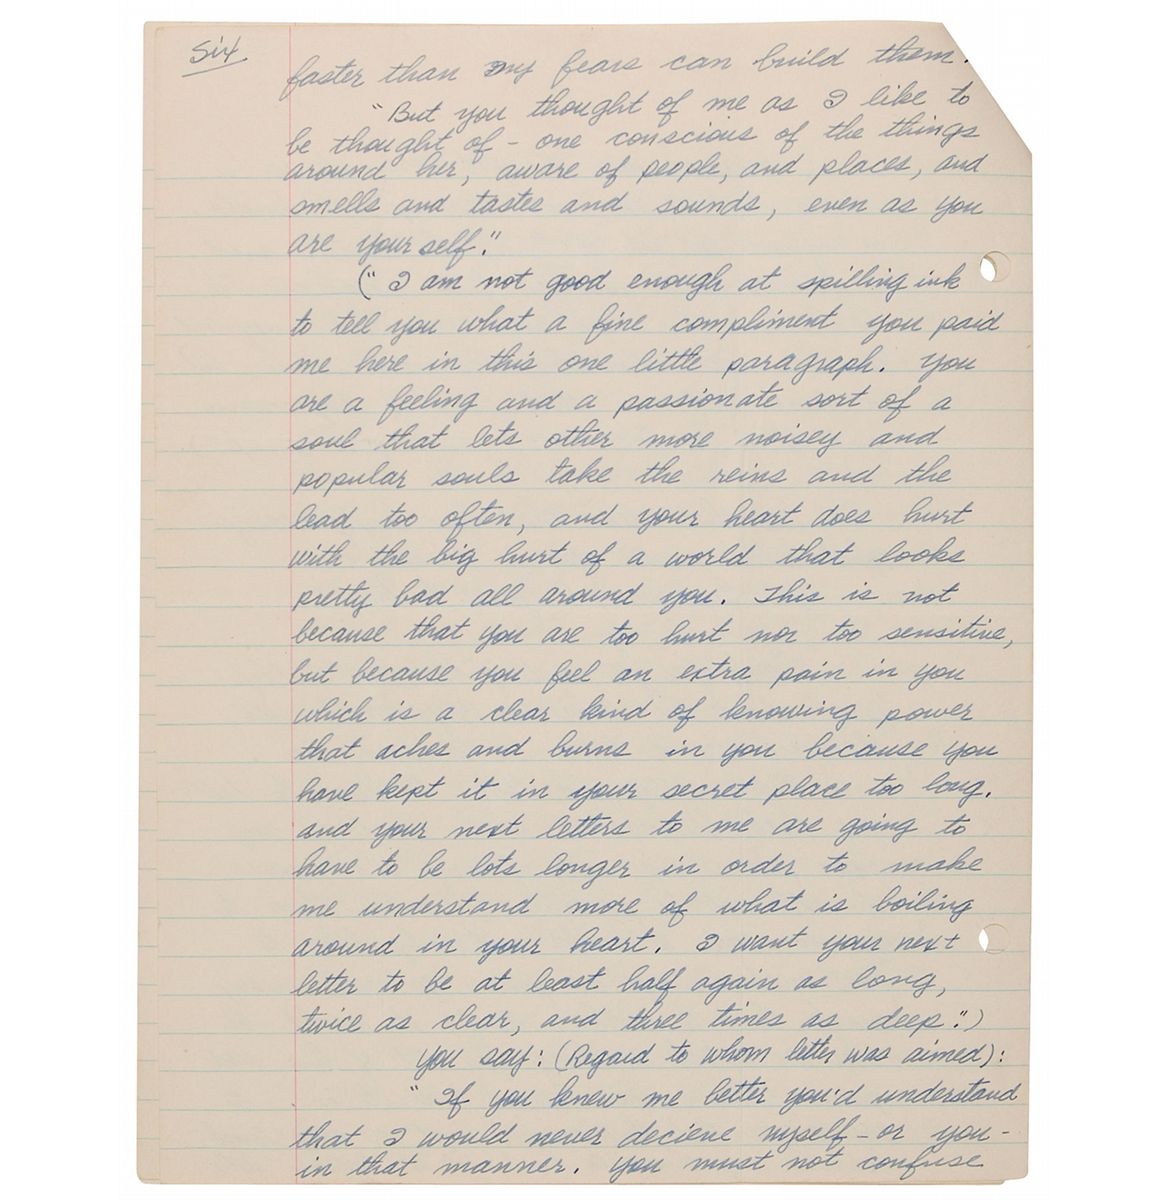 Six
faster than my fears can build them.
"But you thought of me as I like to
be thought of - one conscious of the things
around her, aware of people, and places, and
smells and tastes and sounds, even as you
are yourself."
(" I am not good enough at spilling ink
to tell you what a fine compliment you paid
me here in this one little paragraph. You
are a feeling and a passionate sort of a
soul that lets other more noisey and
popular souls take the reins and the
lead too often, and your heart does hurt
with the big hurt of a world that looks
pretty bad all around you. This is not
because that you are too hurt nor too sensitive,
but because you feel an extra pain in you
which is a clear kind of knowing power
that aches and burns in you because you
have kept it in your secret place too long.
and your next letters to me are going to
have to be lots longer in order to make
me understand more of what is boiling
around in your heart. I want your next
letter to be at least half again as long,
twice as clear, and three times as deep.")
you say: (Regard to whom letter was aimed):
" If you knew me better you'd understand
that I would never decieve myself - or you -
in that manner. You must not confuse